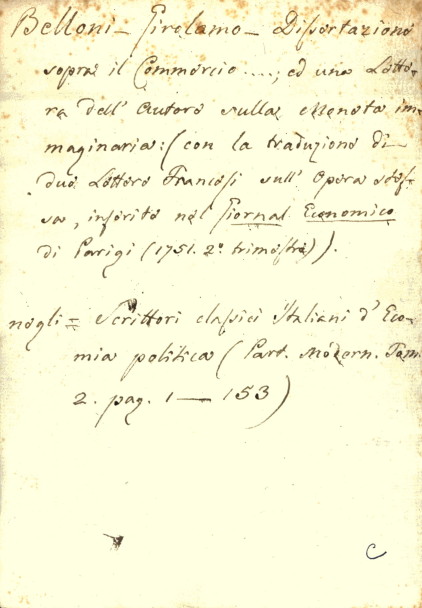 Belloni - Girolamo - Dissertazione
sopra il Commercio ....; ed una Lette-
ra dell' Autore sulla Moneta im-
maginaria: (con la traduzione di
due Lettere Francesi sull' Opera stes-
sa, inserite nel Giornal Economico
di Parigi (1751. 2º trimestre)).
negli = Scrittori classici Italiani d' Eco-
mia politica (Part. Modern. Tom.
2. pag. 1 — 153)
C